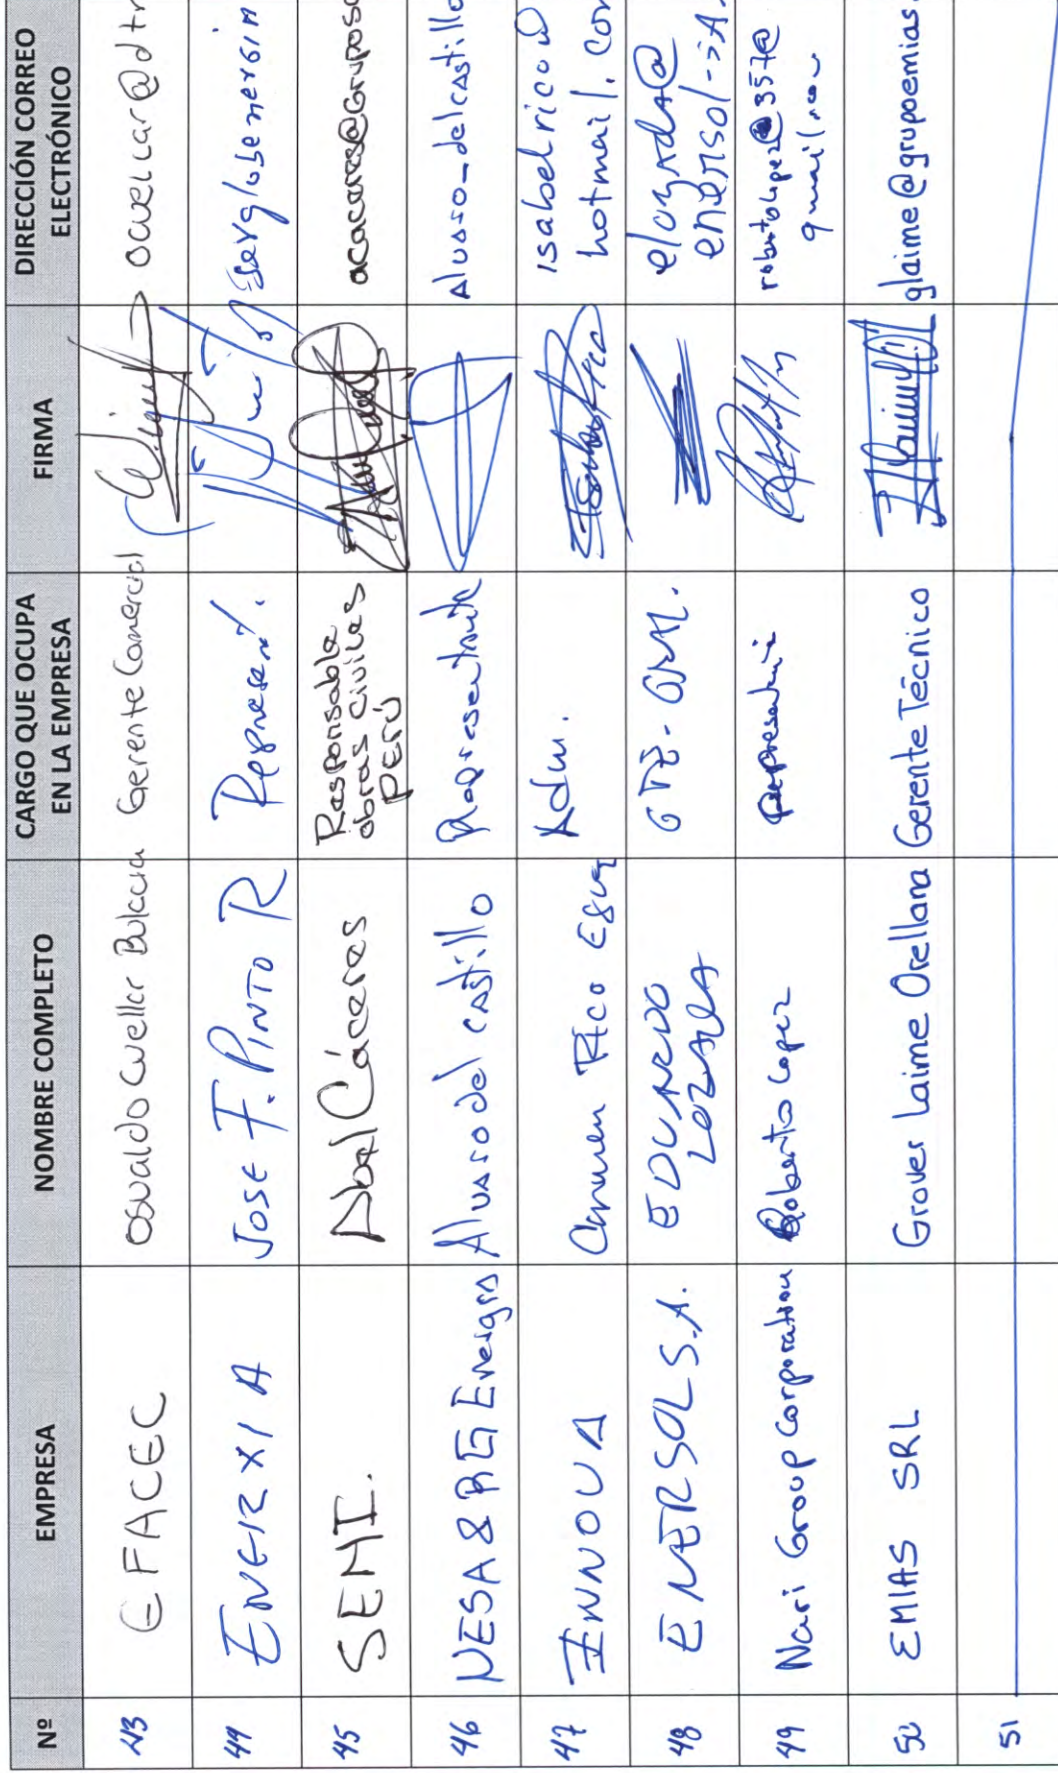 Nº EMPRESA NOMBRE COMPLETO CARGO QUE OCUPA EN LA EMPRESA FIRMA DIRECCIÓN CORREO ELECTRÓNICO
43 EFACEC Osvaldo Cuellar Gerente Comercial
44 ENERXIA JOSE F. PINTO R Represent.
45 SEMI. Abel Cáceres Responsable obras civiles PERÚ
46 NESA & RG Energia Alvaro del Castillo Representante Alvaro_delcastillo
47 INNOVA Carmen Rico Adm. isabelrico hotmail.com
48 ENERSOL S.A. EDUARDO LOZADA GTE. elozada@
49 Nari Group Corporation Roberto Lopez representante
50 EMIAS SRL Grover Laime Orellana Gerente Técnico glaime@grupoemias.
51